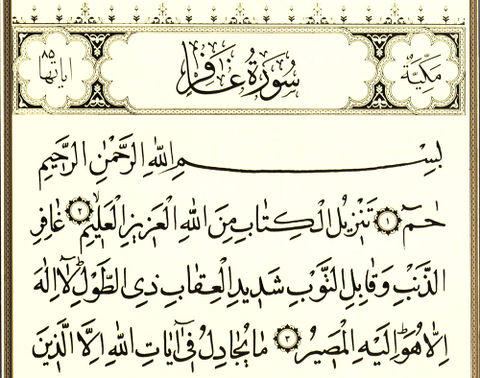 مَكِّيَّةٌ سُورَةُ غَافِر اياتها ٨٥
بِسْمِ اللهِ الرَّحْمٰنِ الرَّحِيمِ
حٰمٓ ۝١ تَنْزِيلُ الْكِتَابِ مِنَ اللهِ الْعَزِيزِ الْعَلِيمِ ۝٢ غَافِرِ
الذَّنْبِ وَقَابِلِ التَّوْبِ شَدِيدِ الْعِقَابِ ذِى الطَّوْلِ لَآ اِلٰهَ
اِلَّا هُوَ اِلَيْهِ الْمَصِيرُ ۝٣ مَا يُجَادِلُ فِىٓ اٰيَاتِ اللهِ اِلَّا الَّذِينَ